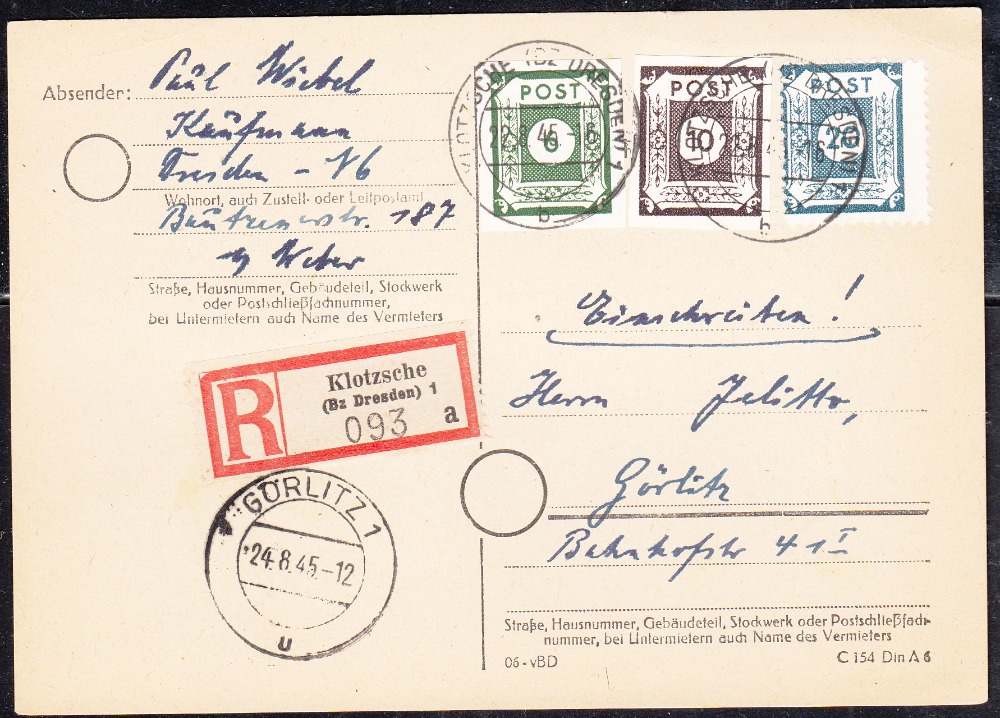 Absender: Paul Wiebel
Kaufmann
Dresden - N6
Wohnort, auch Zustell- oder Leitpostamt
Bautznerstr. 187
b/ Weber
Straße, Hausnummer, Gebäudeteil, Stockwerk
oder Postschließfachnummer,
bei Untermietern auch Name des Vermieters
KLOTZSCHE (BZ DRESDEN) 1
22.8.45-16
b
POST
6
POST
10
POST
20
b
R
Klotzsche
(Bz Dresden) 1
093 a
GÖRLITZ 1
24.8.45-12
u
Einschreiben!
Herrn Jelitto,
Görlitz
Bahnhofstr 41 I
Straße, Hausnummer, Gebäudeteil, Stockwerk oder Postschließfach-
nummer, bei Untermietern auch Name des Vermieters
06-vBD C 154 Din A 6